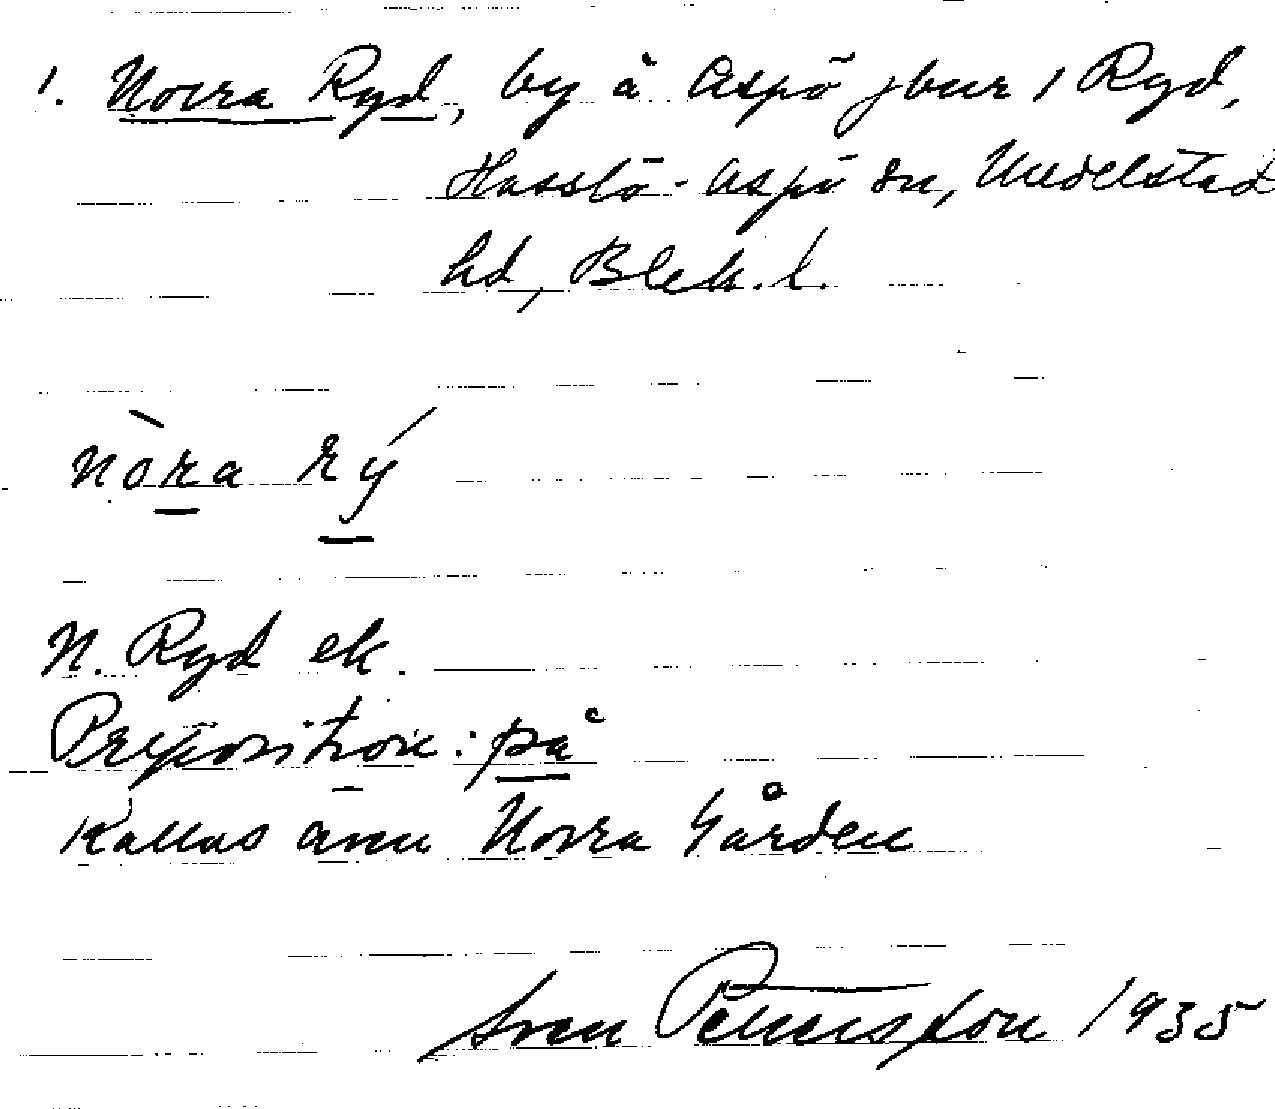 1. Norra Ryd, by å Aspö jbnr 1 Ryd,
Hasslö-Aspö sn, Medelstad
hd, Blek. l.
nòra rý
N. Ryd ek.
Preposition: på
Kallas även Norra Gården
Sven Petersson 1935